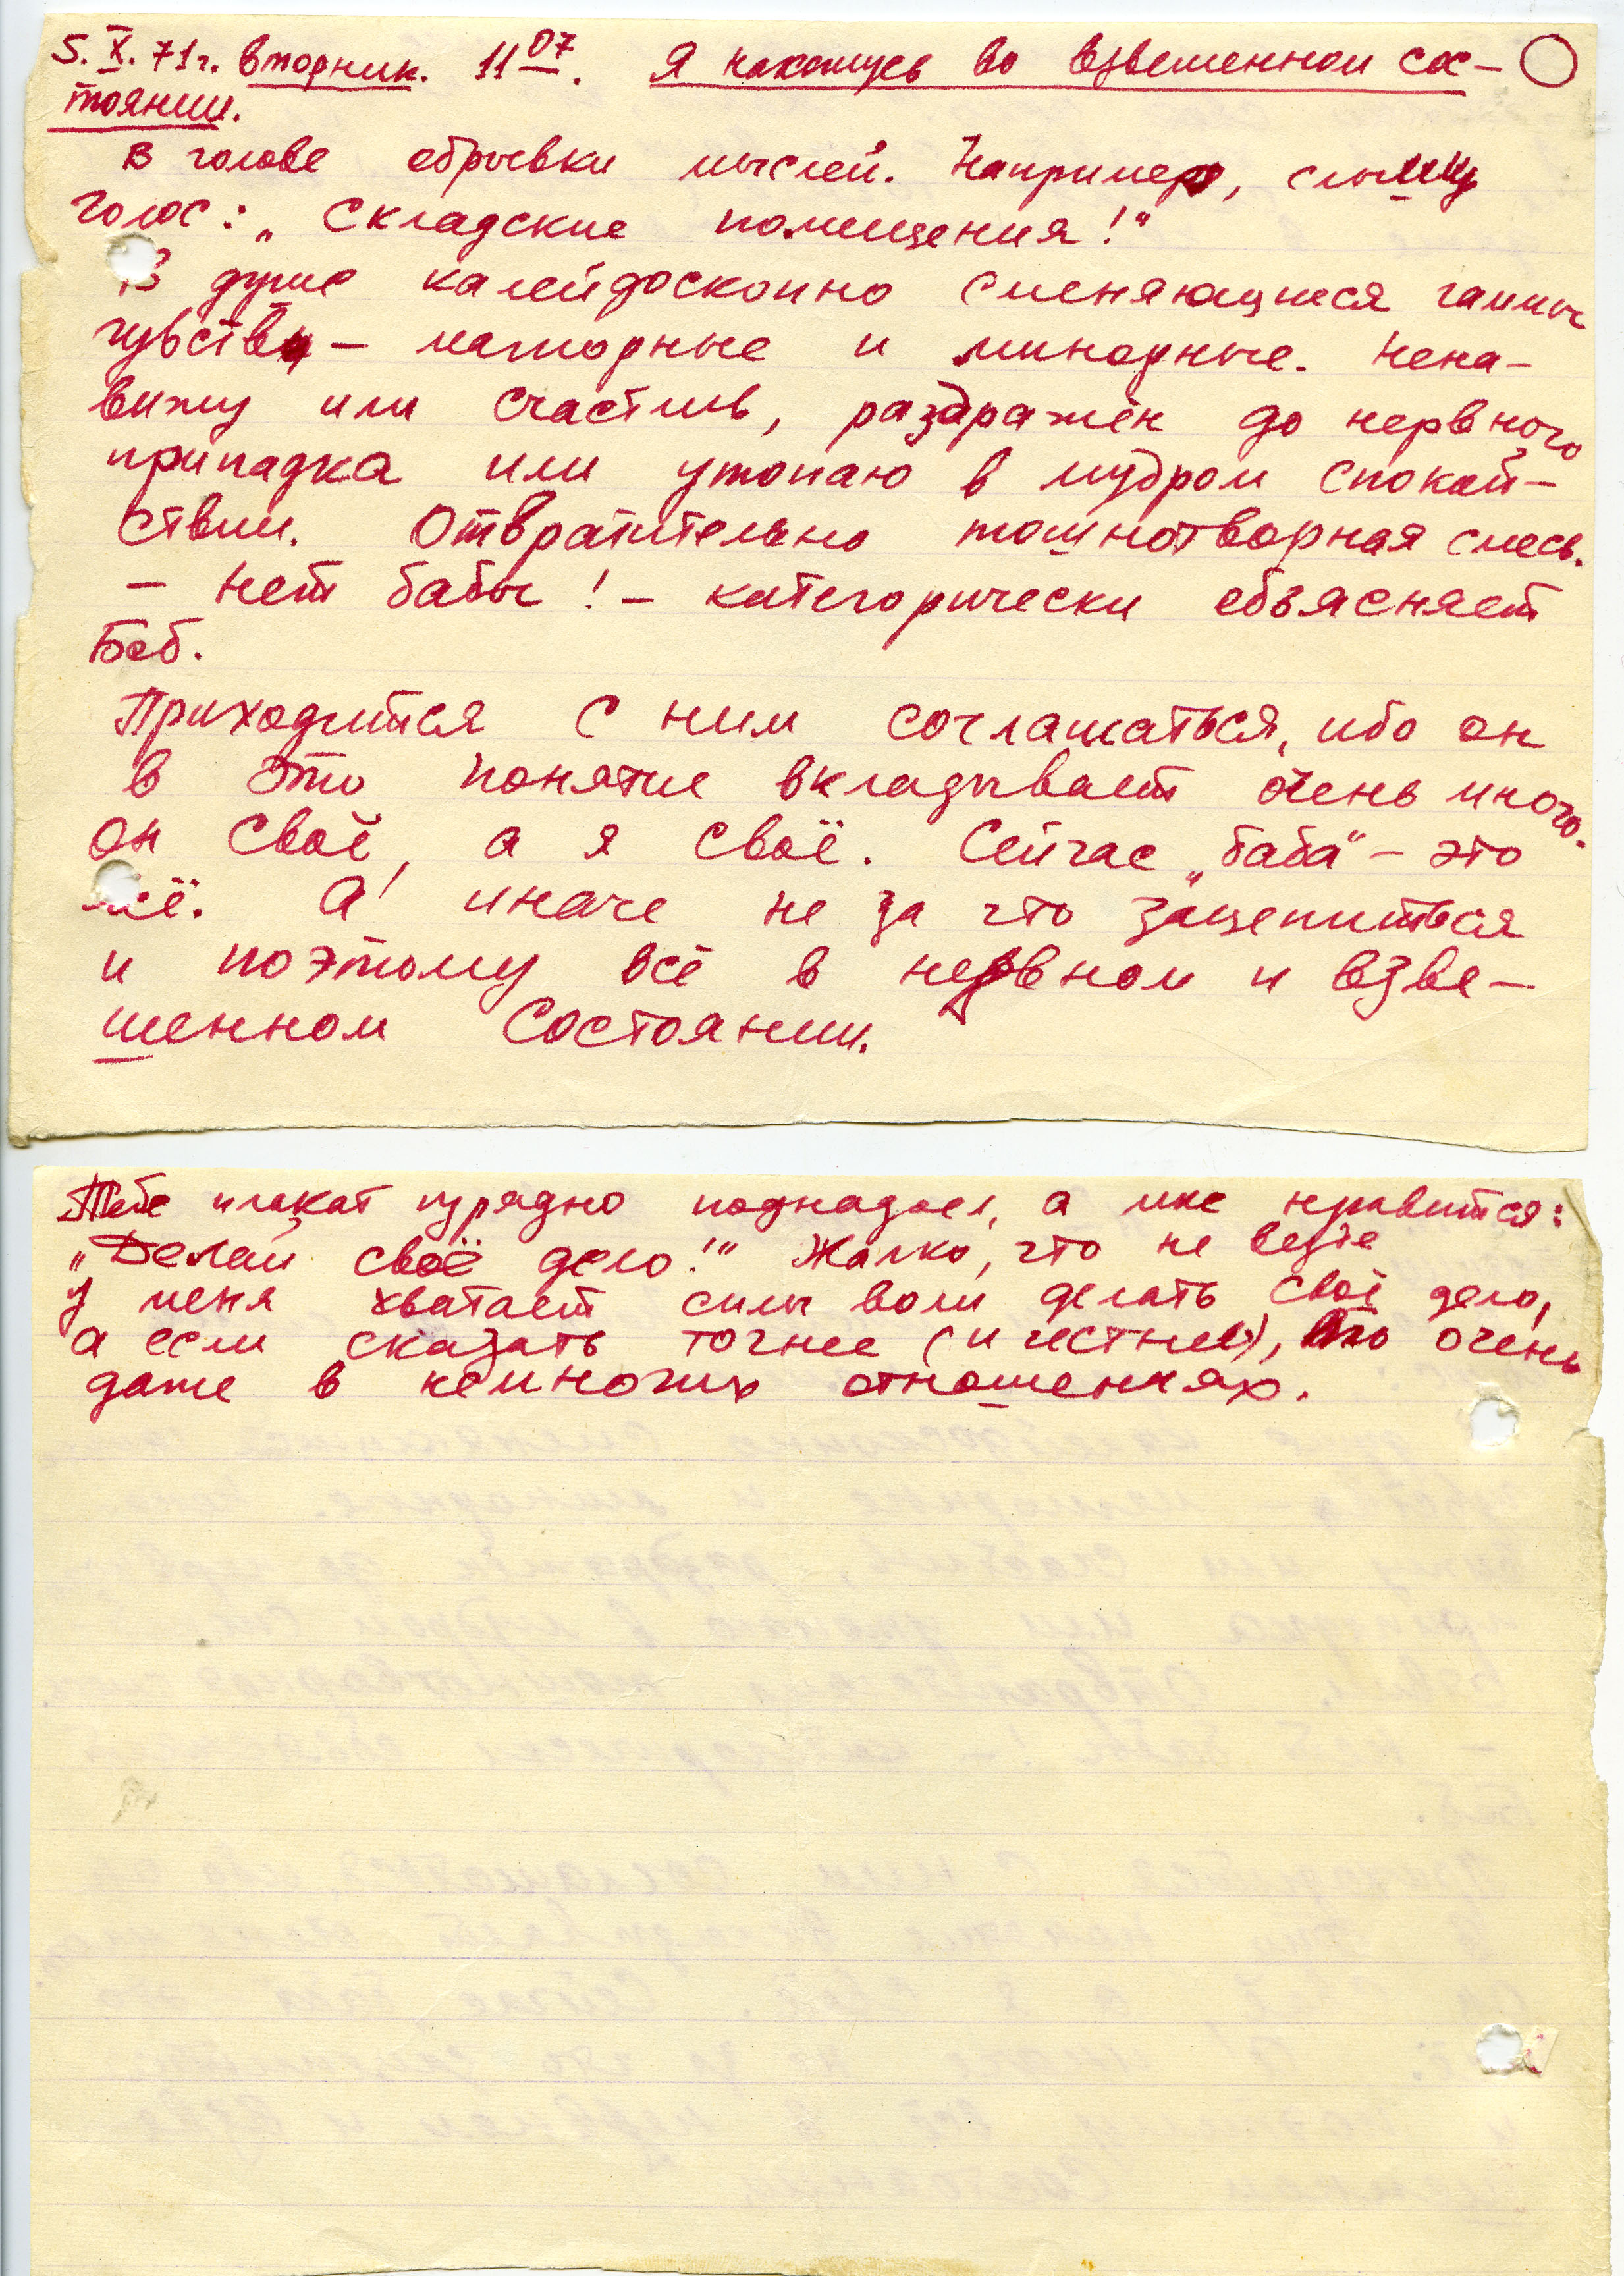 5.X.71г. вторник. 11 07. Я нахожусь во взвешенном сос-
тоянии.
В голове обрывки мыслей. Например, слышу
голос: „Складские помещения!“
В душе калейдоскопно сменяющиеся гаммы
чувств – мажорные и минорные. Нена-
вижу или счастлив, раздражён до нервного
припадка или утопаю в мудром спокой-
ствии. Отвратительно тошнотворная смесь.
– Нет бабы! – категорически объясняет
Боб.
Приходится с ним соглашаться, ибо он
в это понятие вкладывает очень много.
Он своё, а я своё. Сейчас „баба“ – это
всё. А иначе не за что зацепиться
и поэтому всё в нервном и взве-
шенном состоянии.
Тебе плакат изрядно поднадоел, а мне нравится:
„Делай своё дело!“ Жалко, что не везде
у меня хватает силы воли делать своё дело,
а если сказать точнее (и честнее), то очень
даже в немногих отношениях.